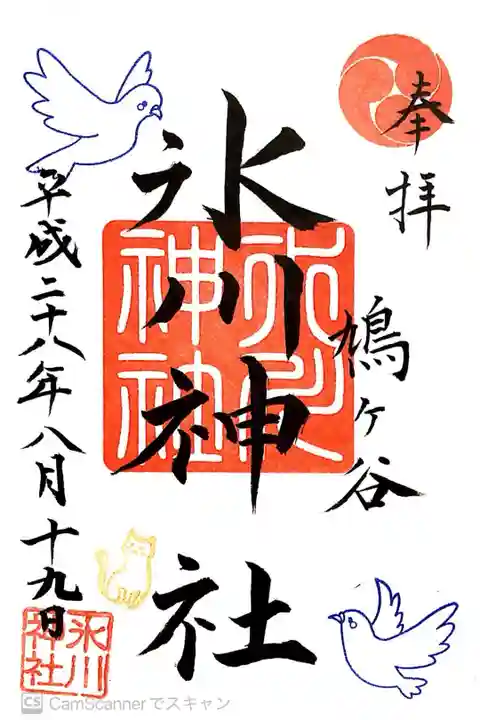 奉拝
鳩ヶ谷
氷川神社
氷川
神社
平成二十八年八月十九日
氷川
神社
CS CamScannerでスキャン